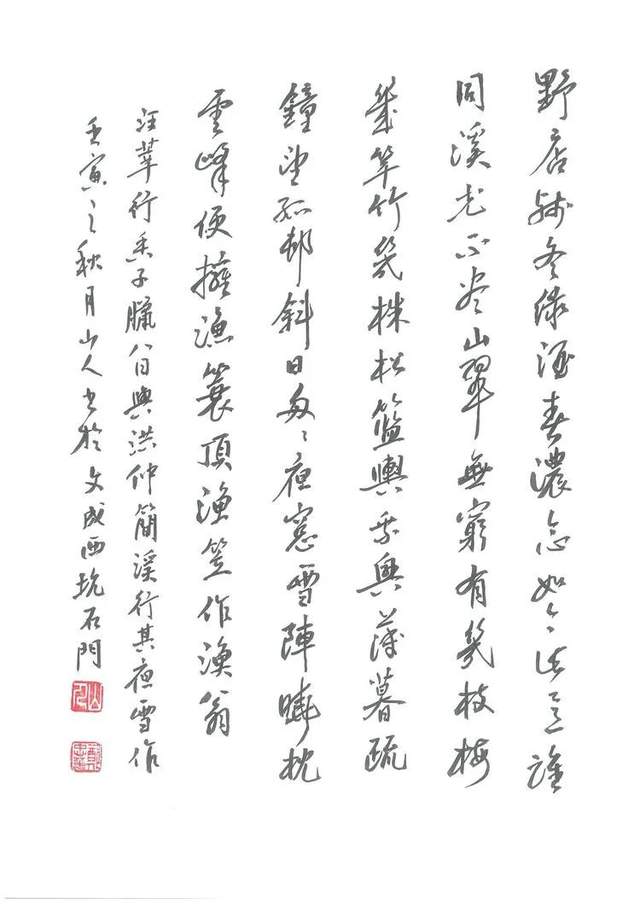 野店殘冬綠酒春濃念如今此意誰
同溪光不盡山翠無窮有幾枝梅
幾竿竹幾株松籃輿乘興薄暮疏
鐘望孤邨斜日匆〻夜窓雪陣曉枕
雲峰便擁漁蓑頂漁笠作漁翁
汪莘行香子臘八日與洪仲簡溪行其夜雪作
壬寅之秋月山人書於文成西坑石門
山人